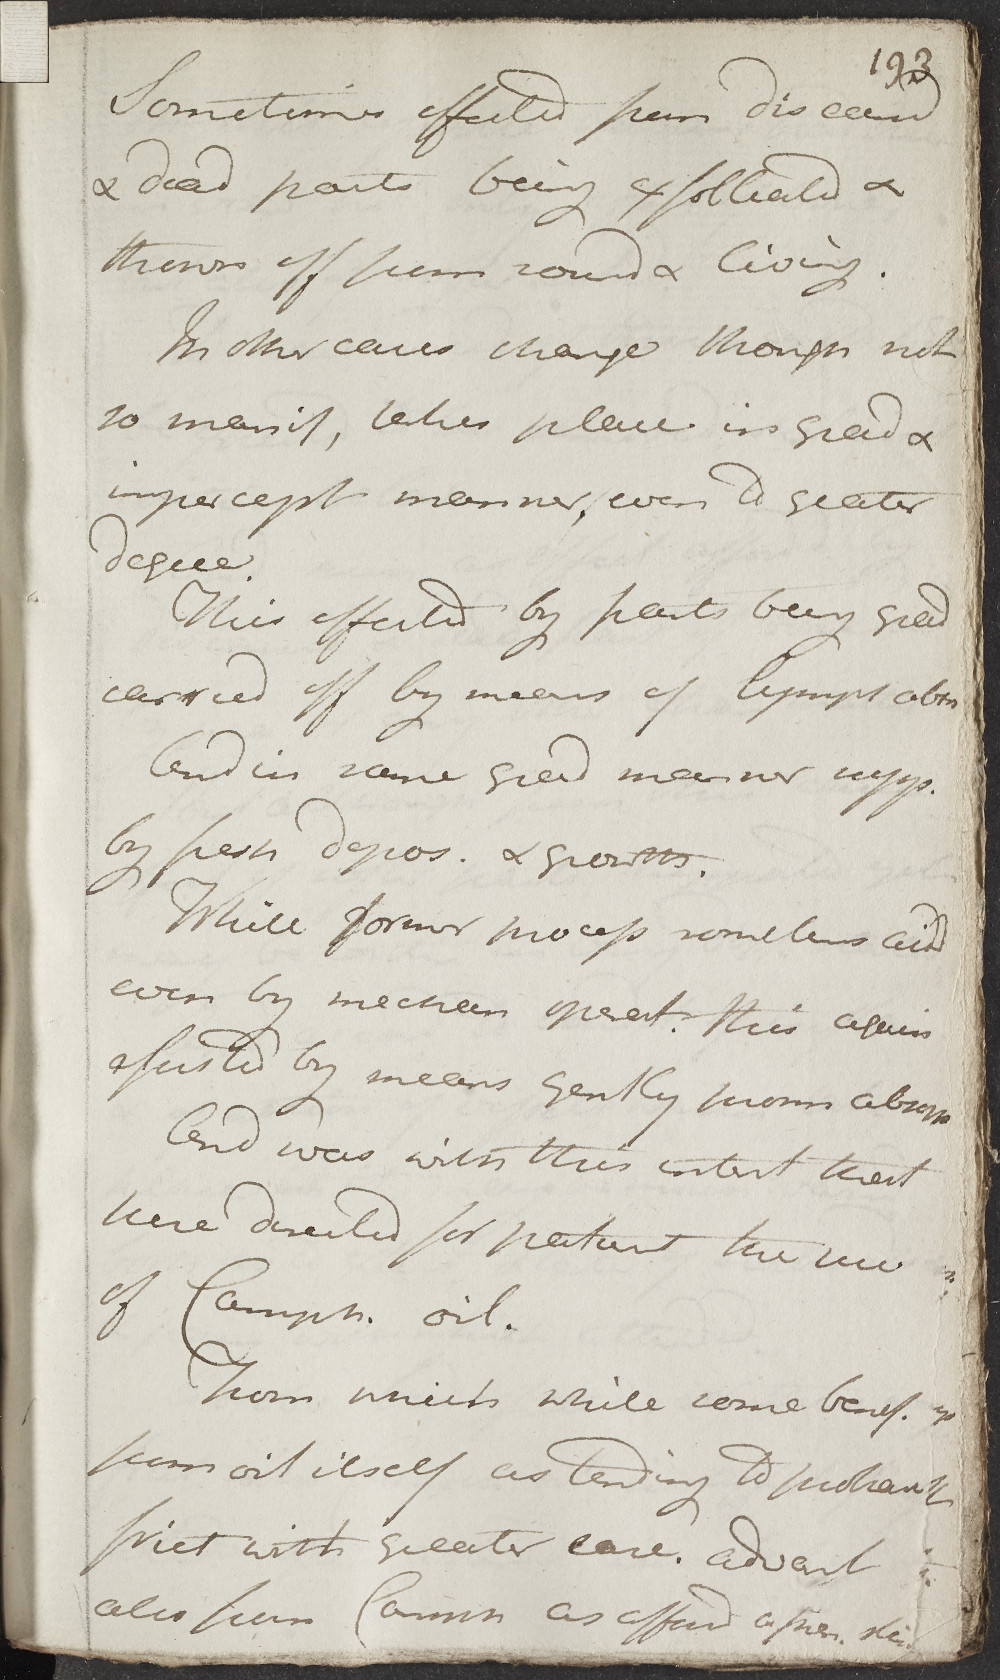 193
Sometimes effected from diseased
& dead parts being exfolliated &
thrown off from sound & living.
In other cases change though not
so manif, takes place in grad &
impercept manner, even to greater
degree.
This effected by parts being grad
carried off by means of lymph absor
And in same grad manner supp.
by fresh depos. & growth.
While former process sometimes aid
even by mechan operat. this again
assisted by means gently prom absorp
And was with this intent that
here directed for patient the use
of Camph. oil.
From which while some benef. exp
from oil itself as tending to
frict with greater ease. advant
also from Camph as afford